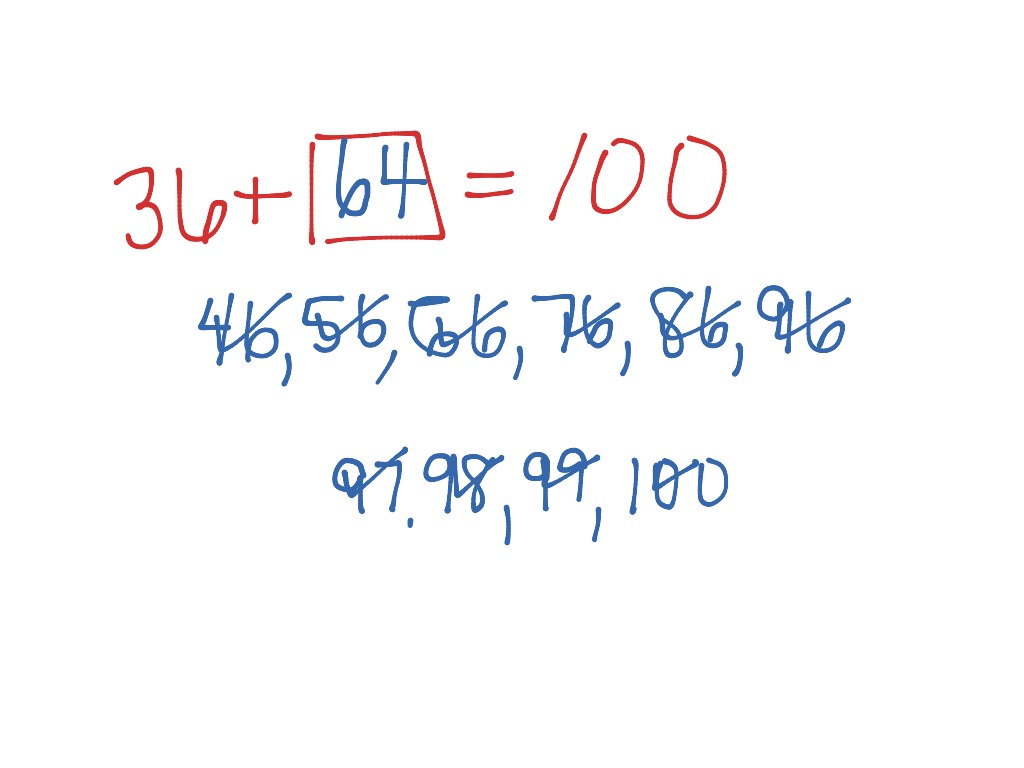 36 + 64 = 100
46, 56, 66, 76, 86, 96
97. 98, 99, 100